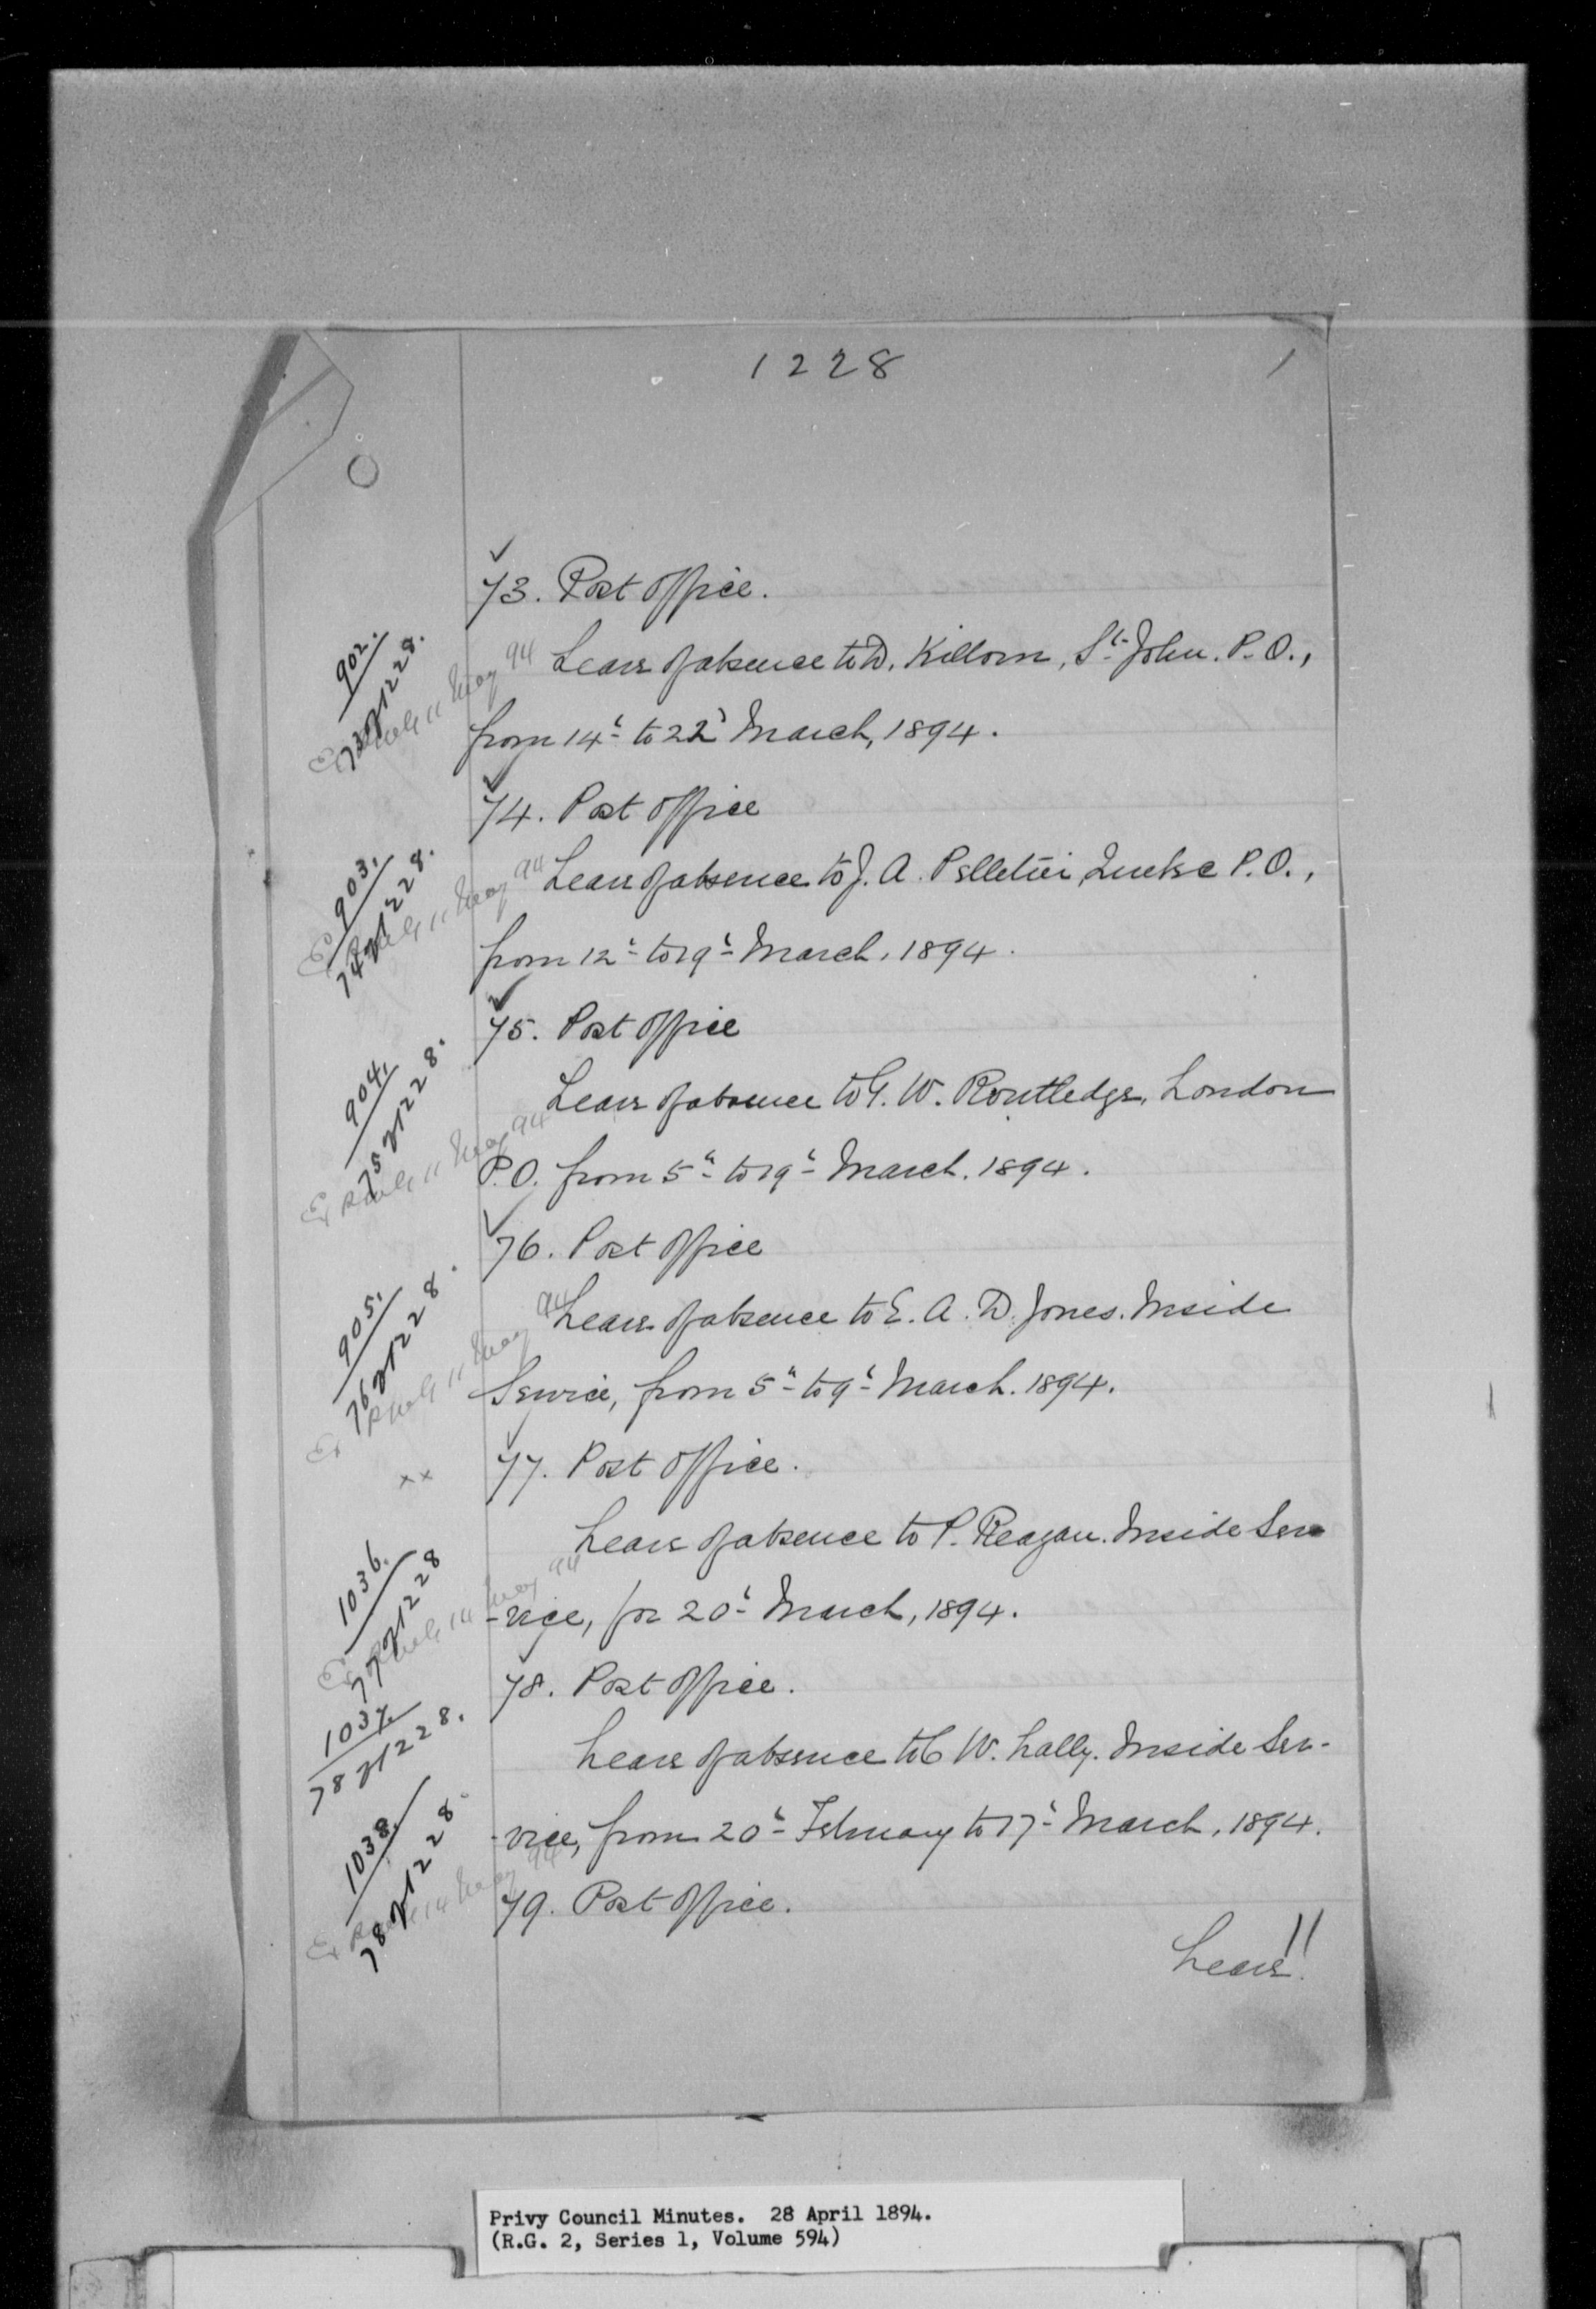 1228
73. Post Office.
902.
73 of 1228.
11 May 94
Leave of absence to D. Killorn, St. John. P.O.,
from 14th to 22d March, 1894.
74. Post Office
903.
74 of 1228.
11 May 94
Leave of absence to J. A. Pelletier, Quebec P.O.,
from 12th to 19th March, 1894.
75. Post Office
904.
75 of 1228.
11 May 94
Leave of absence to G. W. Routledge, London
P.O. from 5th to 19th March. 1894.
76. Post Office
905.
76 of 1228.
11 May 94
Leave of absence to E. A. D. Jones. Inside
Service, from 5th to 9th March. 1894.
xx
77. Post Office.
1036.
77 of 1228
14 May 94
Leave of absence to P. Reagan. Inside Ser
-vice, for 20th March, 1894.
78. Post Office.
1037.
78 of 1228.
Leave of absence to C W. Lally. Inside Ser-
-vice, from 20th February to 17th March, 1894.
79. Post Office.
1038.
78 of 1228.
14 May 94
Leave
Privy Council Minutes. 28 April 1894.
(R.G. 2, Series 1, Volume 594)